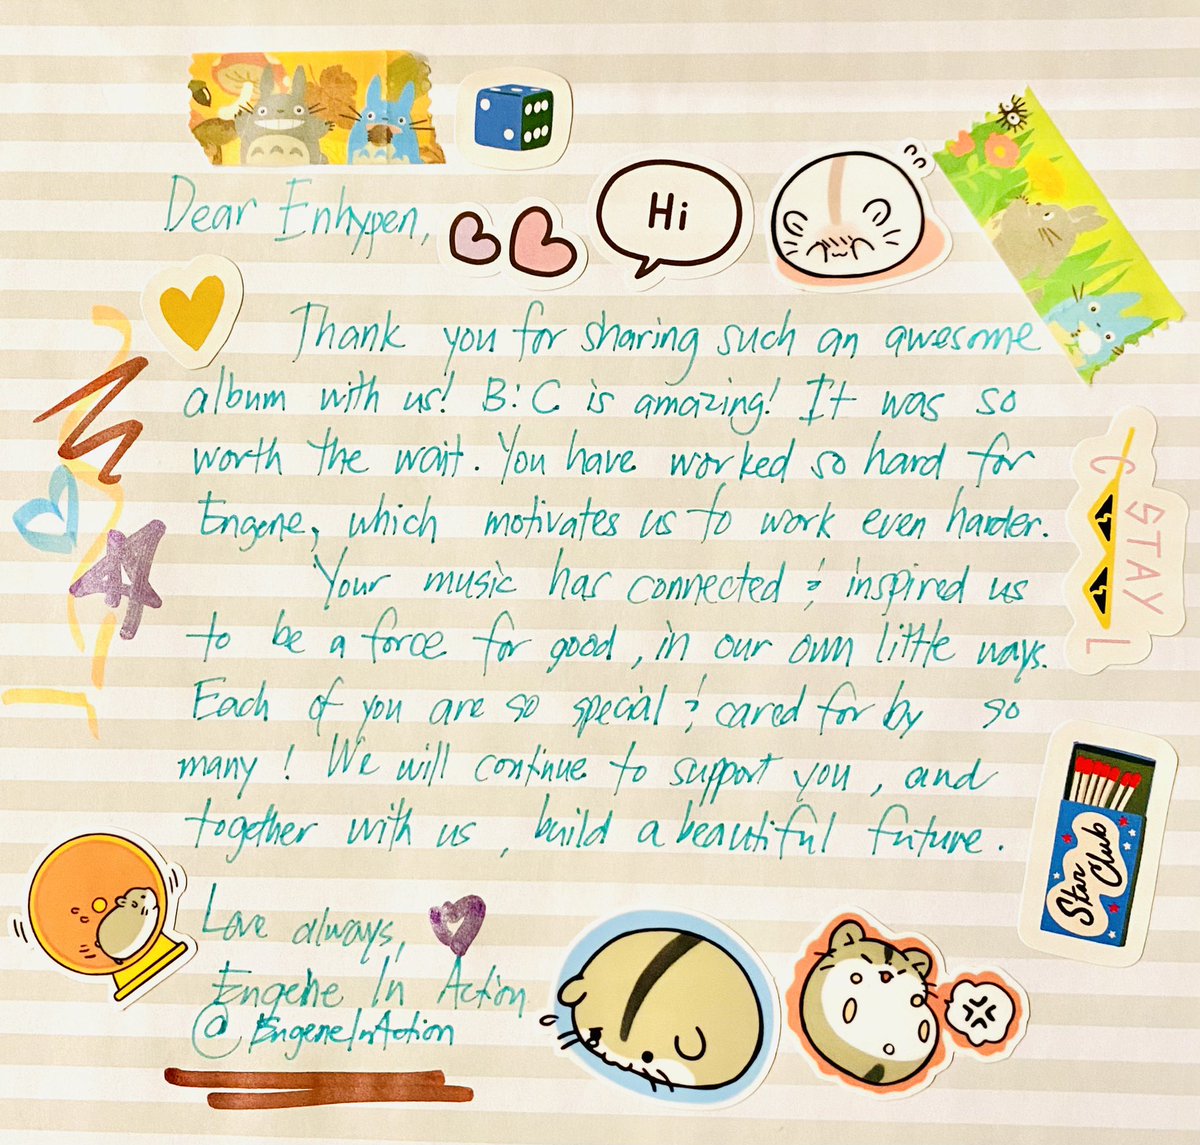 Dear Enhypen,
Hi
Thank you for sharing such an awesome
album with us! B:C is amazing! It was so
worth the wait. You have worked so hard for
Engene, which motivates us to work even harder.
Your music has connected & inspired us
to be a force for good, in our own little ways.
Each of you are so special & cared for by so
many! We will continue to support you, and
together with us, build a beautiful future.
STAY
C L
Star
Club
Love always,
Engene In Action
@EngeneInAction